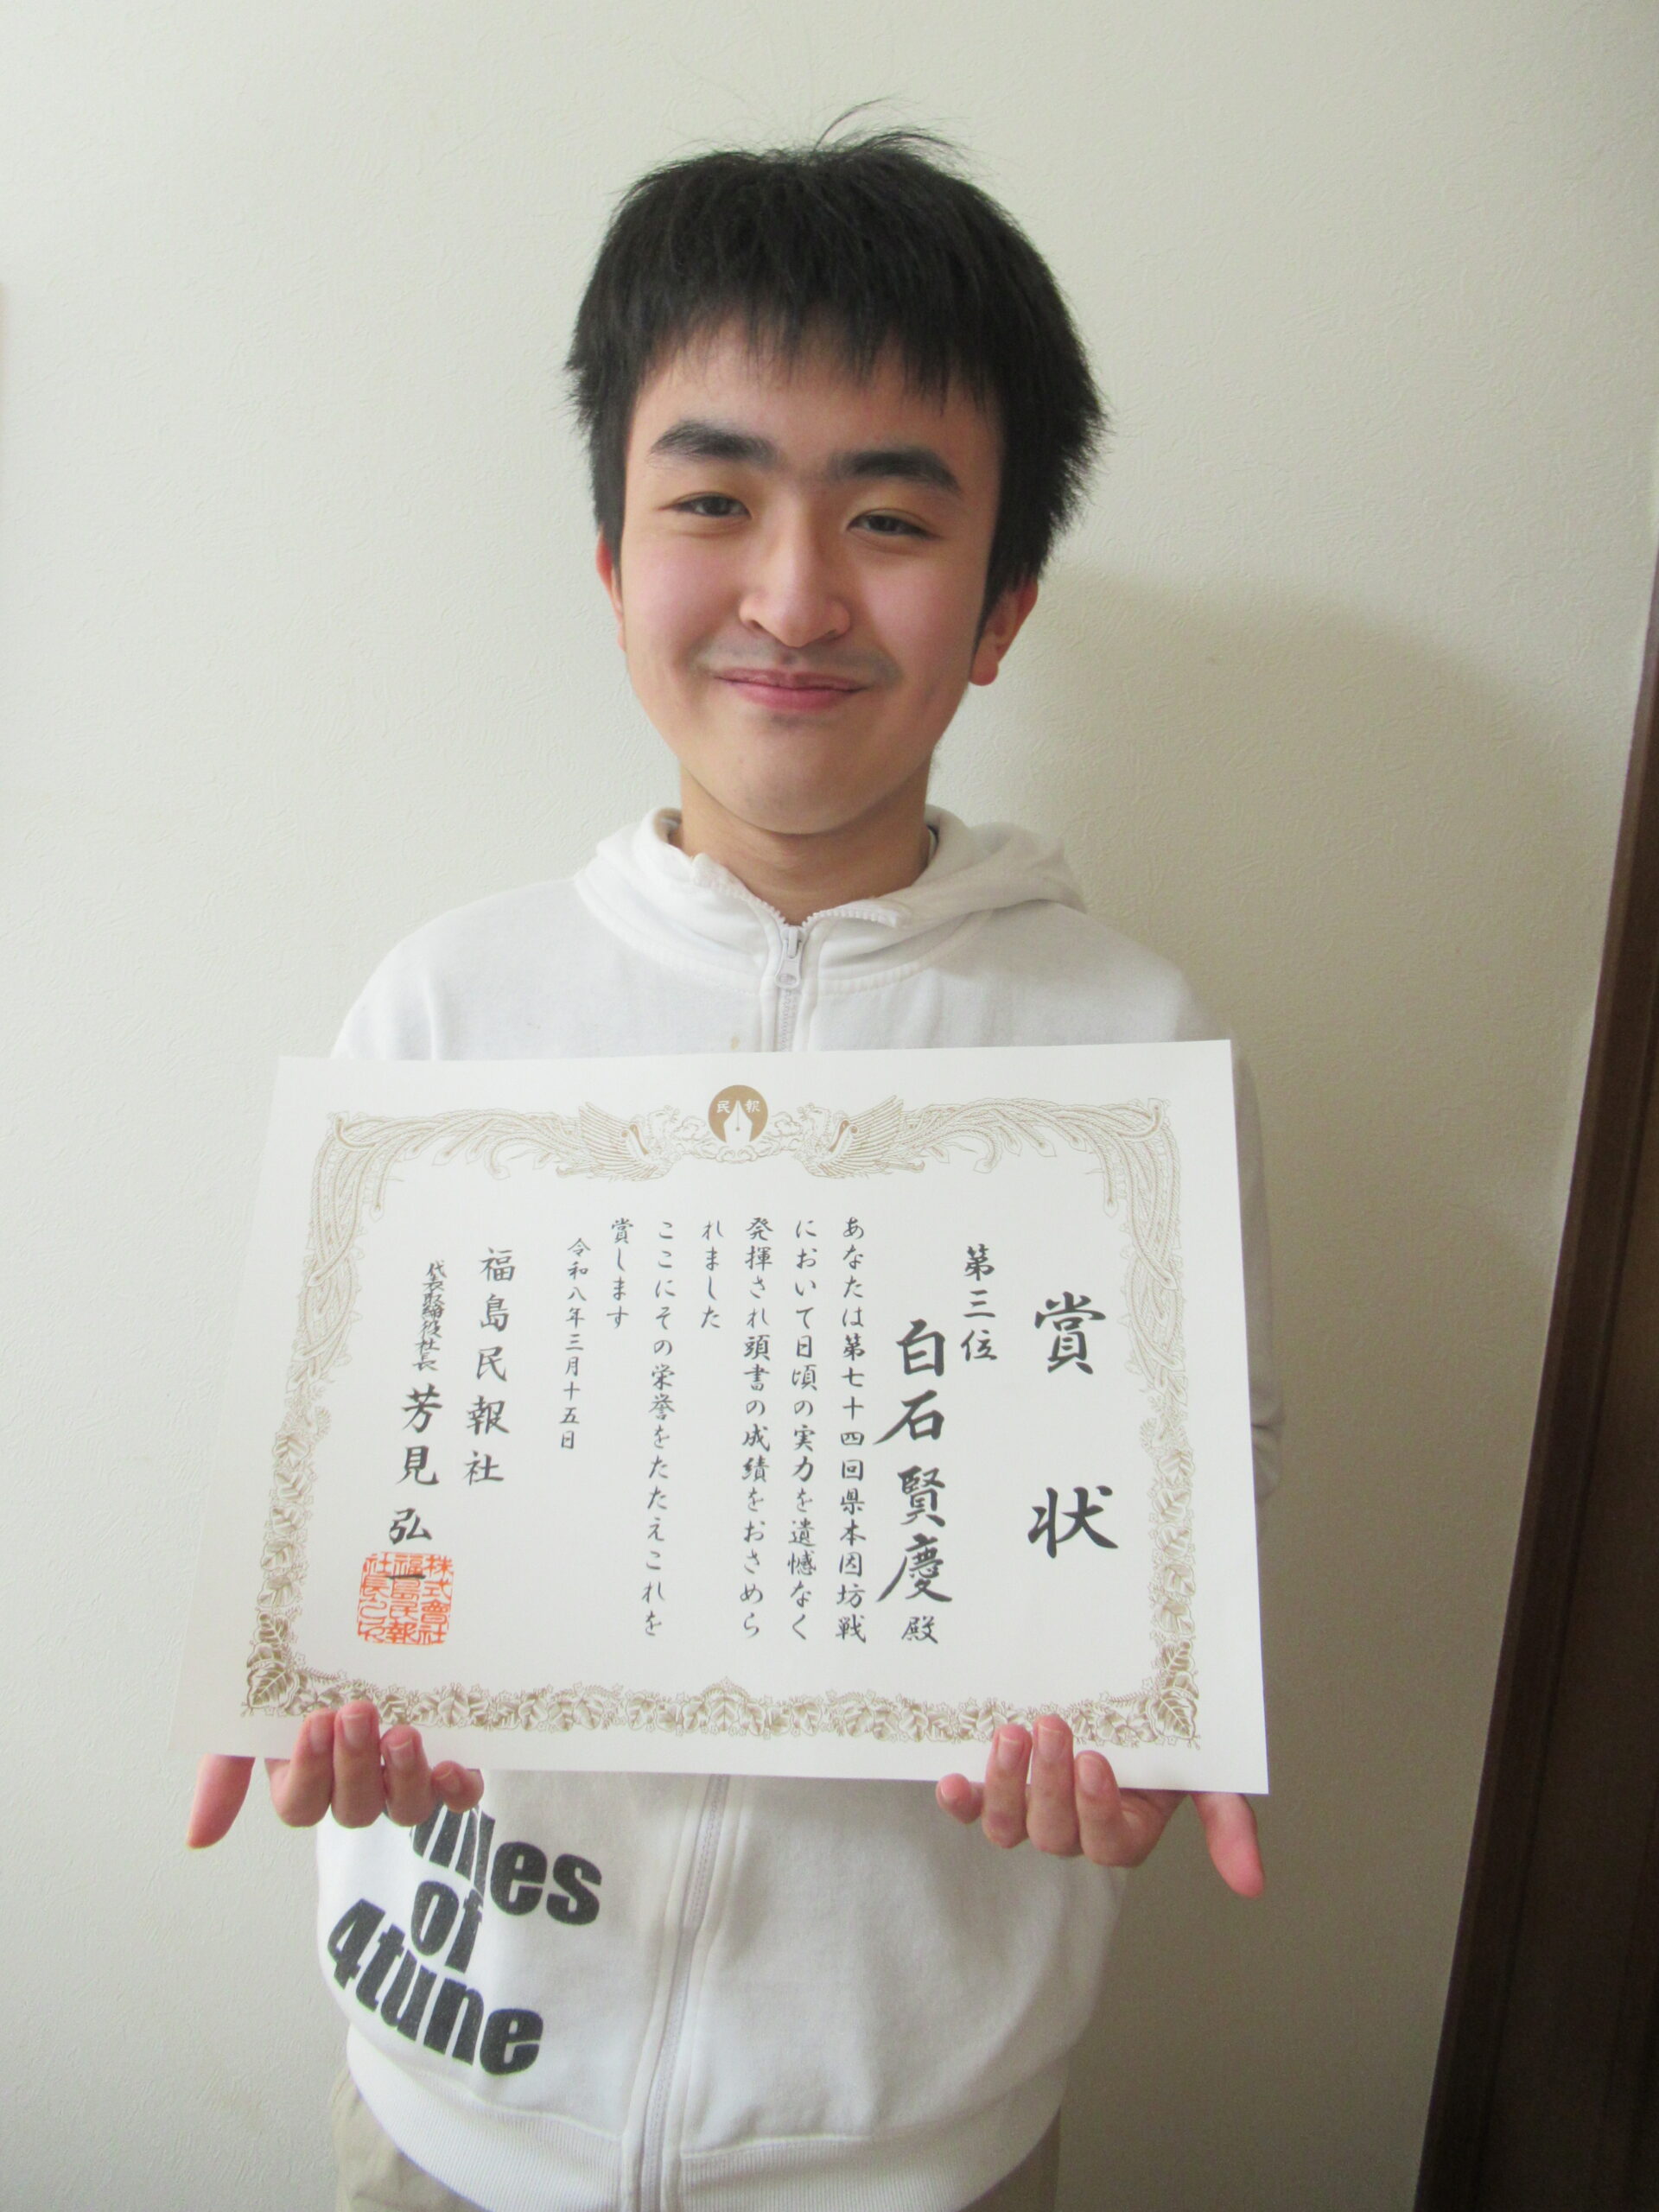 民報
賞状
第三位
白石賢慶殿
あなたは第七十四回県本因坊戦
において日頃の実力を遺憾なく
発揮され頭書の成績をおさめら
れました
ここにその栄誉をたたえこれを
賞します
令和八年三月十五日
福島民報社
代表取締役社長 芳見弘一
株式會社
福島民報
社長之印
miles
of
4tune